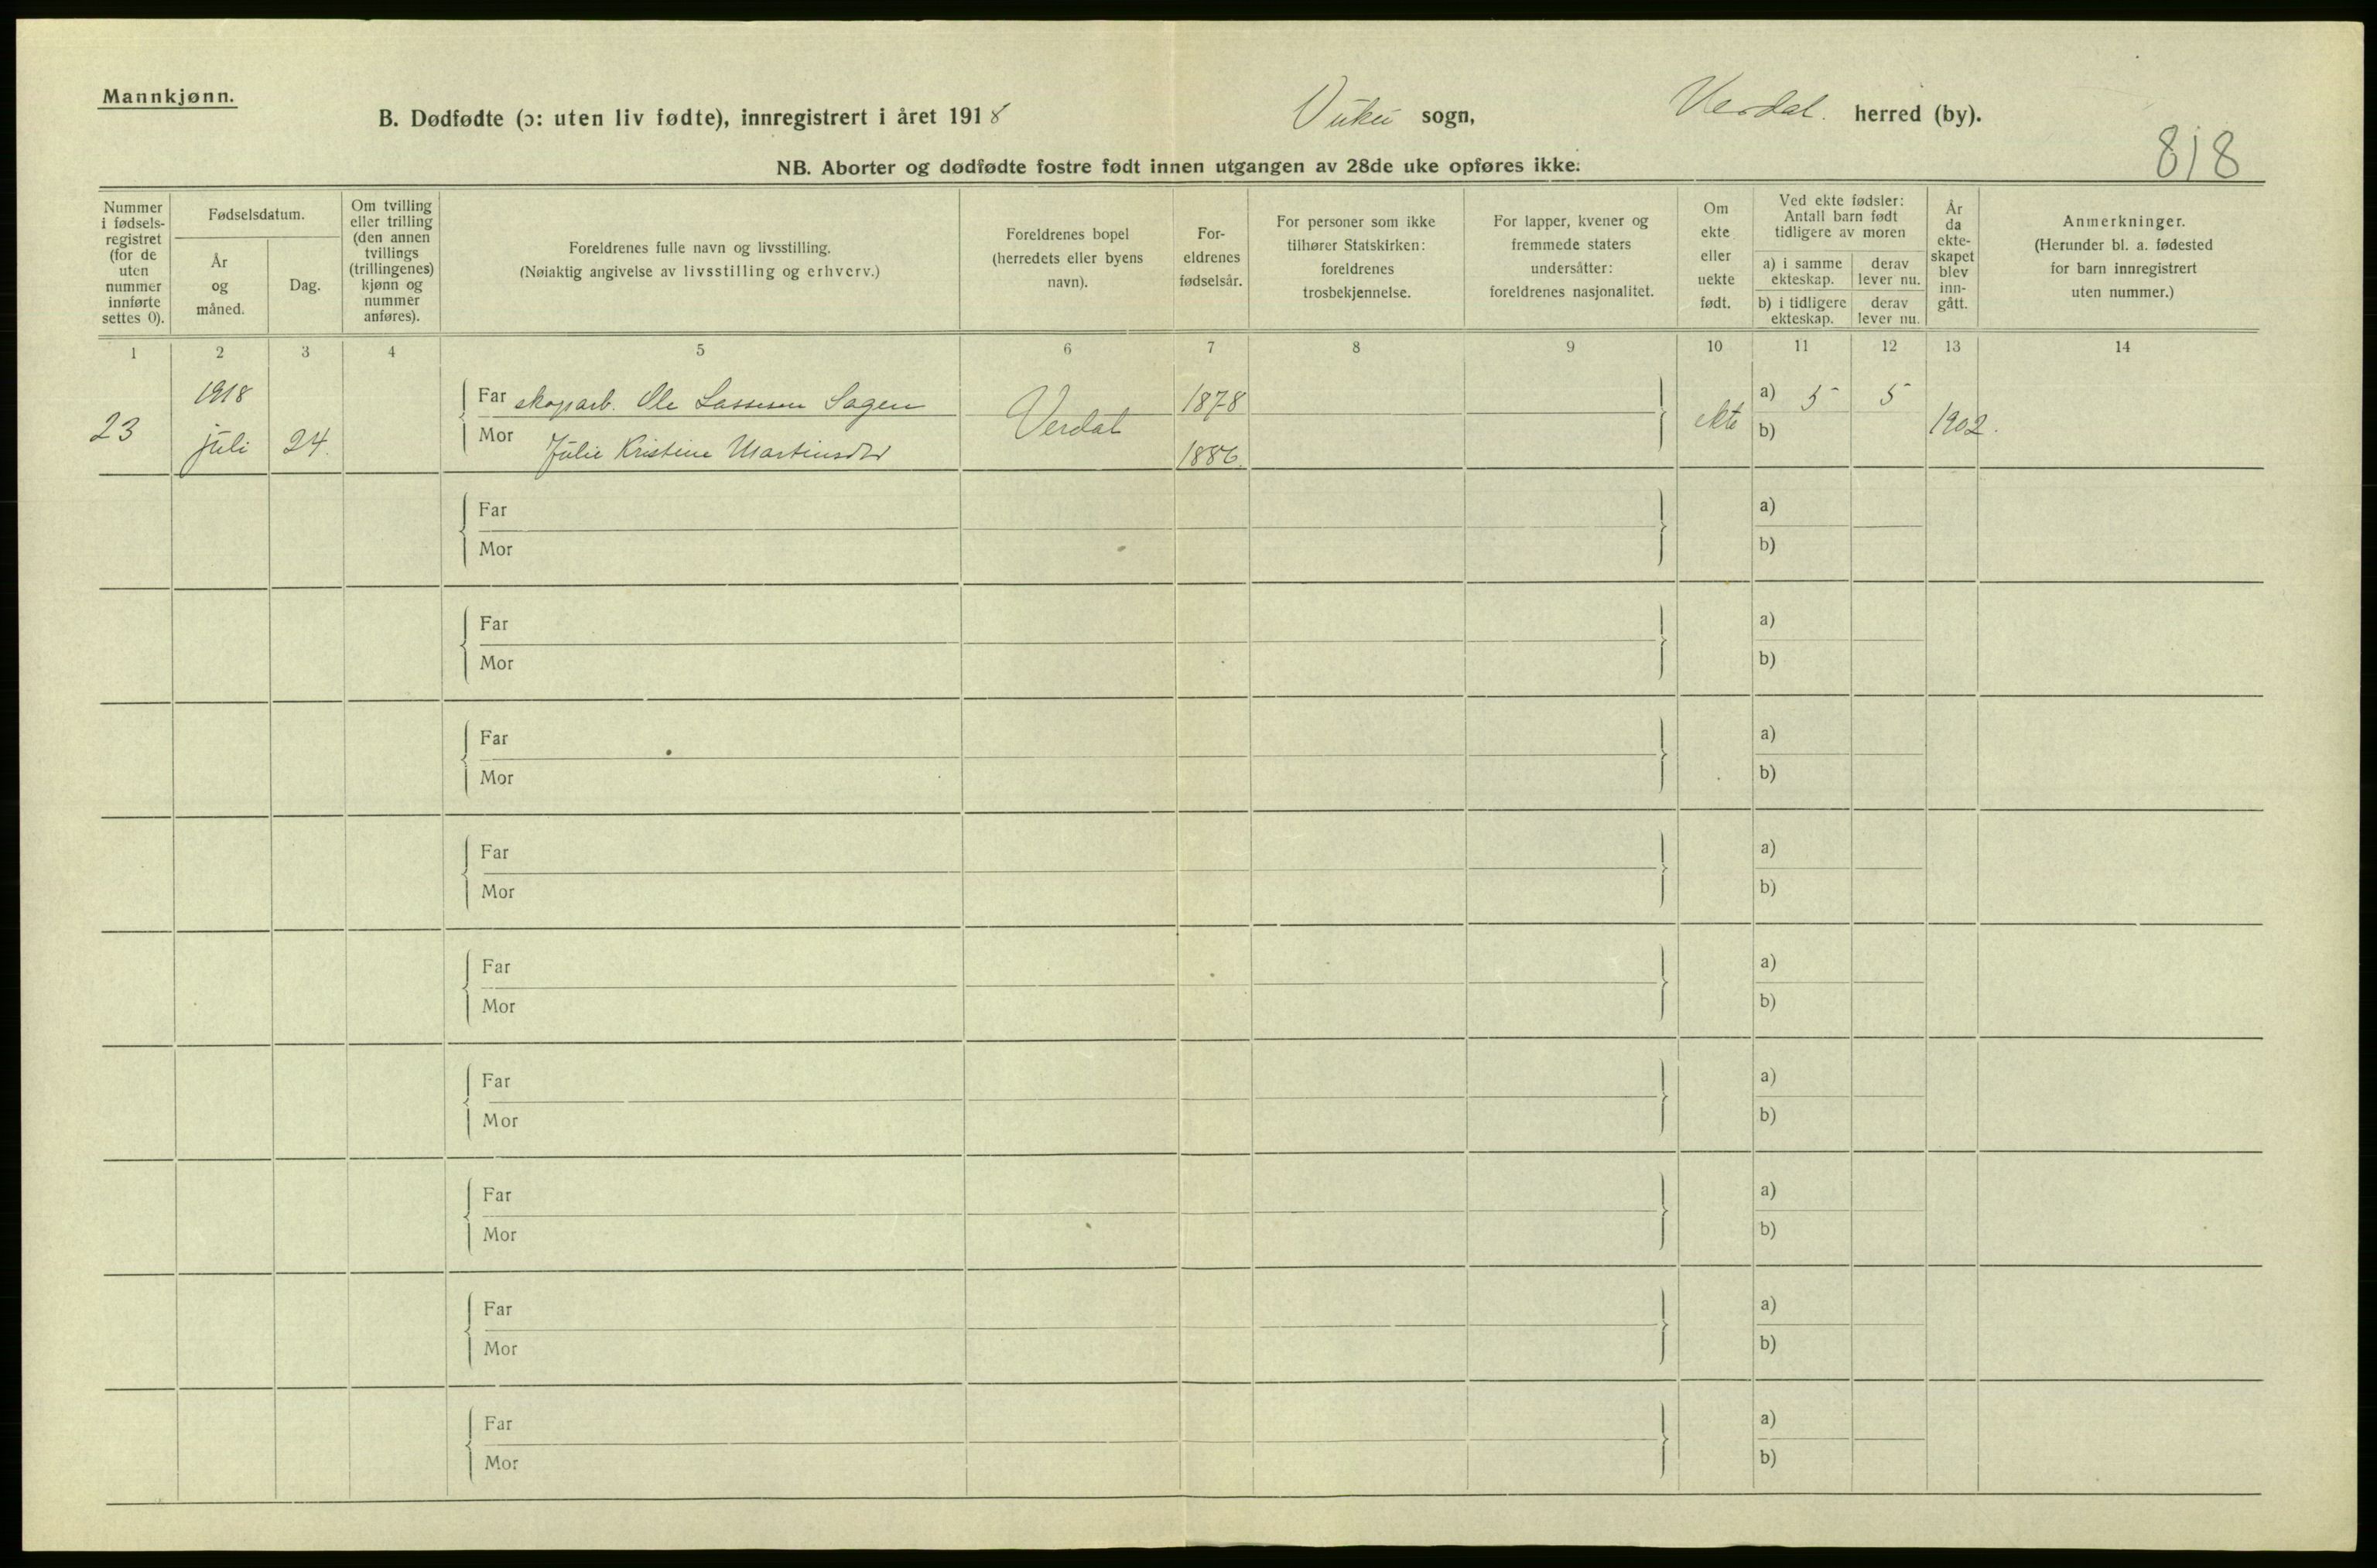 Mannkjønn.
B. Dødfødte (ɔ: uten liv fødte), innregistrert i året 1918 Vuku sogn, Verdal. herred (by).
818
NB. Aborter og dødfødte fostre født innen utgangen av 28de uke opføres ikke.
Nummer i fødsels-registret (for de uten nummer innførte settes 0).
Fødselsdatum.
År og måned.
Dag.
Om tvilling eller trilling (den annen tvillings (trillingenes) kjønn og nummer anføres).
Foreldrenes fulle navn og livsstilling.
(Nøiaktig angivelse av livsstilling og erhverv.)
Foreldrenes bopel (herredets eller byens navn).
For-eldrenes fødselsår.
For personer som ikke tilhører Statskirken: foreldrenes trosbekjennelse.
For lapper, kvener og fremmede staters undersåtter: foreldrenes nasjonalitet.
Om ekte eller uekte født.
Ved ekte fødsler: Antall barn født tidligere av moren
a) i samme ekteskap. derav lever nu.
b) i tidligere ekteskap. derav lever nu.
År da ekte-skapet blev inn-gått.
Anmerkninger.
(Herunder bl. a. fødested for barn innregistrert uten nummer.)
1 2 3 4 5 6 7 8 9 10 11 12 13 14
1918 Far skogsarb. Ole Lassesen Sagen 1878 a) 5 5
23 juli 24. Mor Julie Kristine Martinsdtr Verdal 1886. ekte b) 1902.
Far a)
Mor b)
Far a)
Mor b)
Far a)
Mor b)
Far a)
Mor b)
Far a)
Mor b)
Far a)
Mor b)
Far a)
Mor b)
Far a)
Mor b)
Far a)
Mor b)